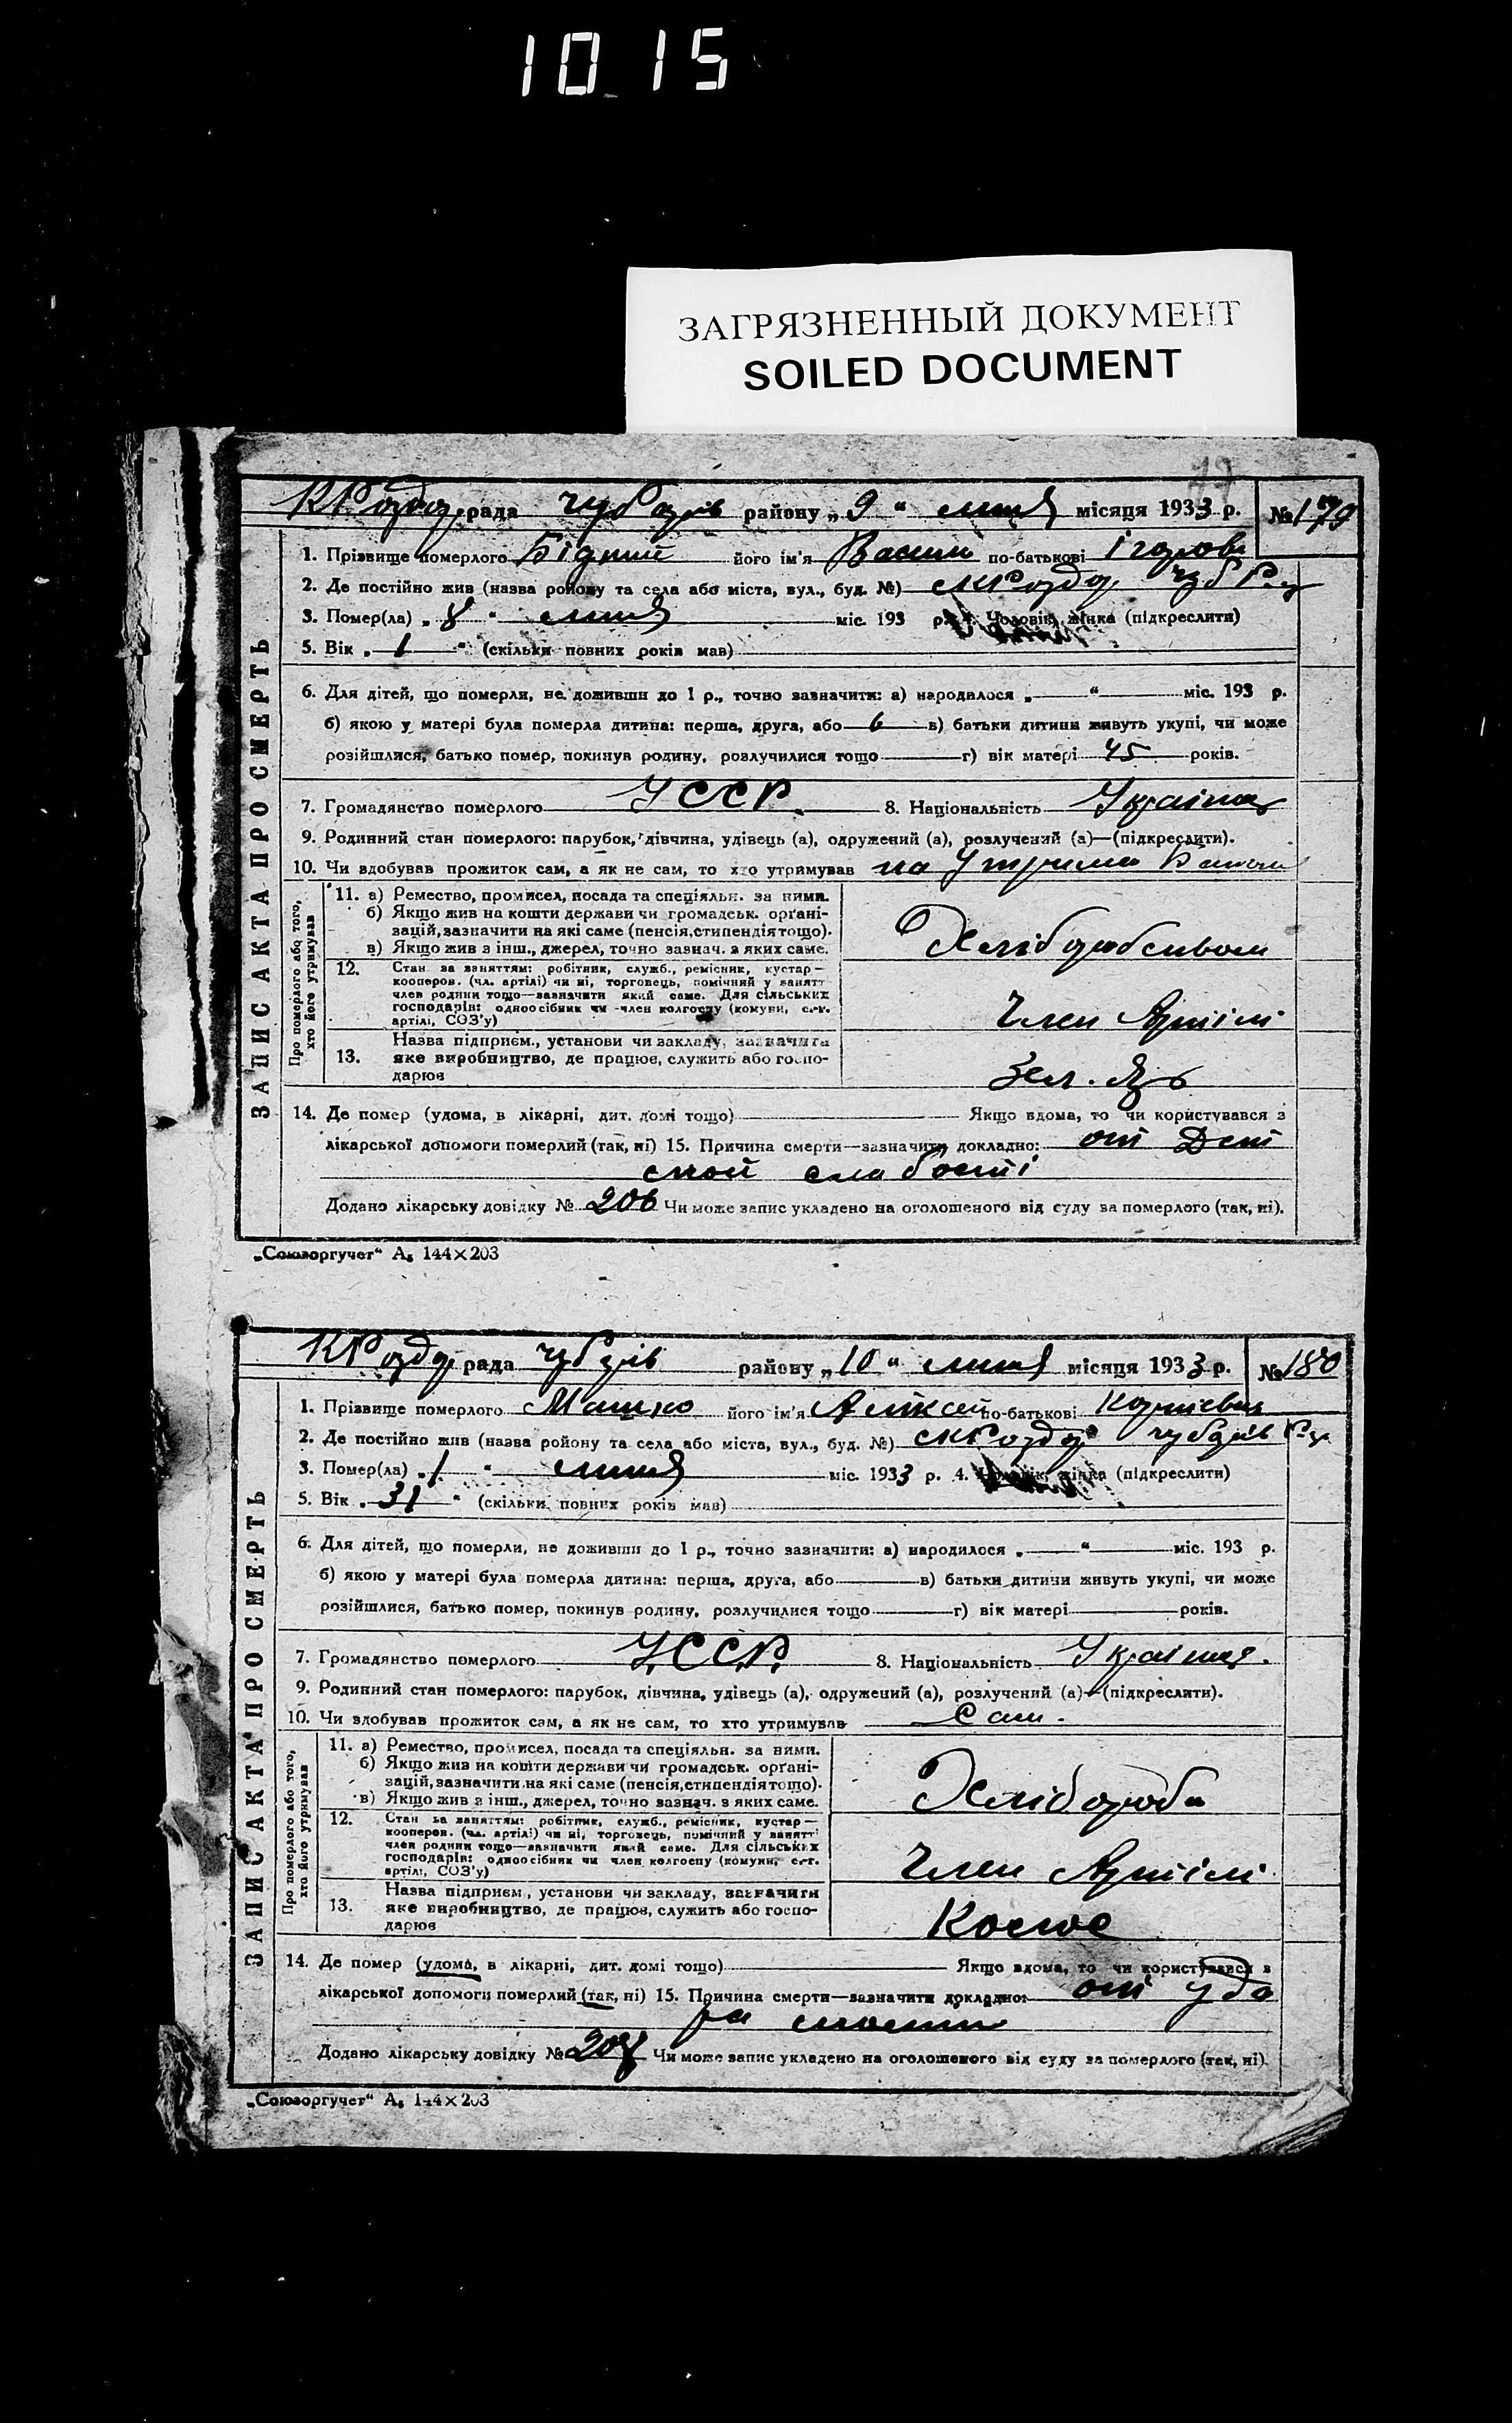 10 15
ЗАГРЯЗНЕННЫЙ ДОКУМЕНТ
SOILED DOCUMENT
ЗАПИС АКТА ПРО СМЕРТЬ
рада району „9“ липня місяця 1933 р. №179
1. Прізвище померлого Бідний його ім'я Василь по-батькові
2. Де постійно жив (назва ройону та села або міста, вул., буд. №)
3. Помер(ла) „8“ липня міс. 193 р. 4. Чоловік, жінка (підкреслити)
5. Вік „1“ (скільки повних років мав)
6. Для дітей, що померли, не доживши до 1 р., точно зазначити: а) народилося „ “ міс. 193 р.
б) якою у матері була померла дитина: перша, друга, або 6 в) батьки дитини живуть укупі, чи може
розійшлися, батько помер, покинув родину, розлучилися тощо г) вік матері 45 років.
7. Громадянство померлого УССР. 8. Національність Українец
9. Родинний стан померлого: парубок, дівчина, удівець (а), одружений (а), розлучений (а)—(підкреслити).
10. Чи здобував прожиток сам, а як не сам, то хто утримував на Утрима
Про померлого або того, хто його утримував
11. а) Ремество, промисел, посада та спеціяльн. за ними.
б) Якщо жив на кошти держави чи громадськ. орґані-
зацій, зазначити на які саме (пенсія, стипендія тощо).
в) Якщо жив з інш., джерел, точно зазнач. з яких саме.
12. Стан за заняттям: робітник, служб., ремісник, кустар—
кооперов. (чл. артілі) чи ні, торговець, помічний у занятт
член родини тощо—зазначити який саме. Для сільських
господарів: одноосібник чи член колгоспу (комуни, с.-г.
артілі, СОЗ'у)
Член Артілі
13. Назва підприєм., установи чи закладу, зазначити
яке виробництво, де працює, служить або госпо-
дарює
14. Де помер (удома, в лікарні, дит. домі тощо) Якщо вдома, то чи користувався з
лікарської допомоги померлий (так, ні) 15. Причина смерти—зазначити докладно: от Дет
ской слабості
Додано лікарську довідку № 206 Чи може запис укладено на оголошеного від суду за померлого (так, ні).
„Союзоргучет“ А₅ 144×203
ЗАПИС АКТА ПРО СМЕРТЬ
рада району „10“ липня місяця 1933 р. №180
1. Прізвище померлого Машко його ім'я Алексей по-батькові
2. Де постійно жив (назва ройону та села або міста, вул., буд. №)
3. Помер(ла) „1“ липня міс. 1933 р. 4. Чоловік, жінка (підкреслити)
5. Вік „31“ (скільки повних років мав)
6. Для дітей, що померли, не доживши до 1 р., точно зазначити: а) народилося „ “ міс. 193 р.
б) якою у матері була померла дитина: перша, друга, або в) батьки дитини живуть укупі, чи може
розійшлися, батько помер, покинув родину, розлучилися тощо г) вік матері років.
7. Громадянство померлого У.С.С.Р. 8. Національність Українец.
9. Родинний стан померлого: парубок, дівчина, удівець (а), одружений (а), розлучений (а)—(підкреслити).
10. Чи здобував прожиток сам, а як не сам, то хто утримував Сам.
Про померлого або того, хто його утримував
11. а) Ремество, промисел, посада та спеціяльн. за ними.
б) Якщо жив на кошти держави чи громадськ. орґані-
зацій, зазначити на які саме (пенсія, стипендія тощо).
в) Якщо жив з інш., джерел, точно зазнач. з яких саме.
Хлібороб
12. Стан за заняттям: робітник, служб., ремісник, кустар—
кооперов. (чл. артілі) чи ні, торговець, помічний у занятт
член родини тощо—зазначити який саме. Для сільських
господарів: одноосібник чи член колгоспу (комуни, с.-г.
артілі, СОЗ'у)
Член Артілі
13. Назва підприєм., установи чи закладу, зазначити
яке виробництво, де працює, служить або госпо-
дарює
14. Де помер (удома, в лікарні, дит. домі тощо) Якщо вдома, то чи користувався з
лікарської допомоги померлий (так, ні) 15. Причина смерти—зазначити докладно: от
Додано лікарську довідку № Чи може запис укладено на оголошеного від суду за померлого (так, ні).
„Союзоргучет“ А₅ 144×203